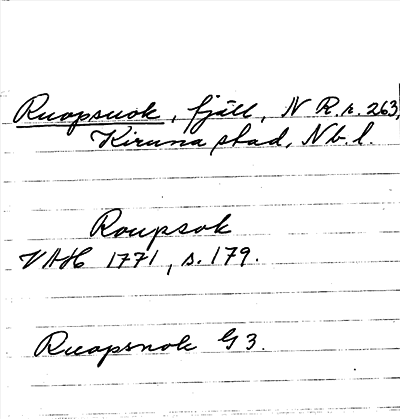 Ruopsuok, fjäll, N R.r. 263,
Kiruna stad, Nb. l.
Roupsok
VAH 1771, s. 179.
Ruopsnok G 3.